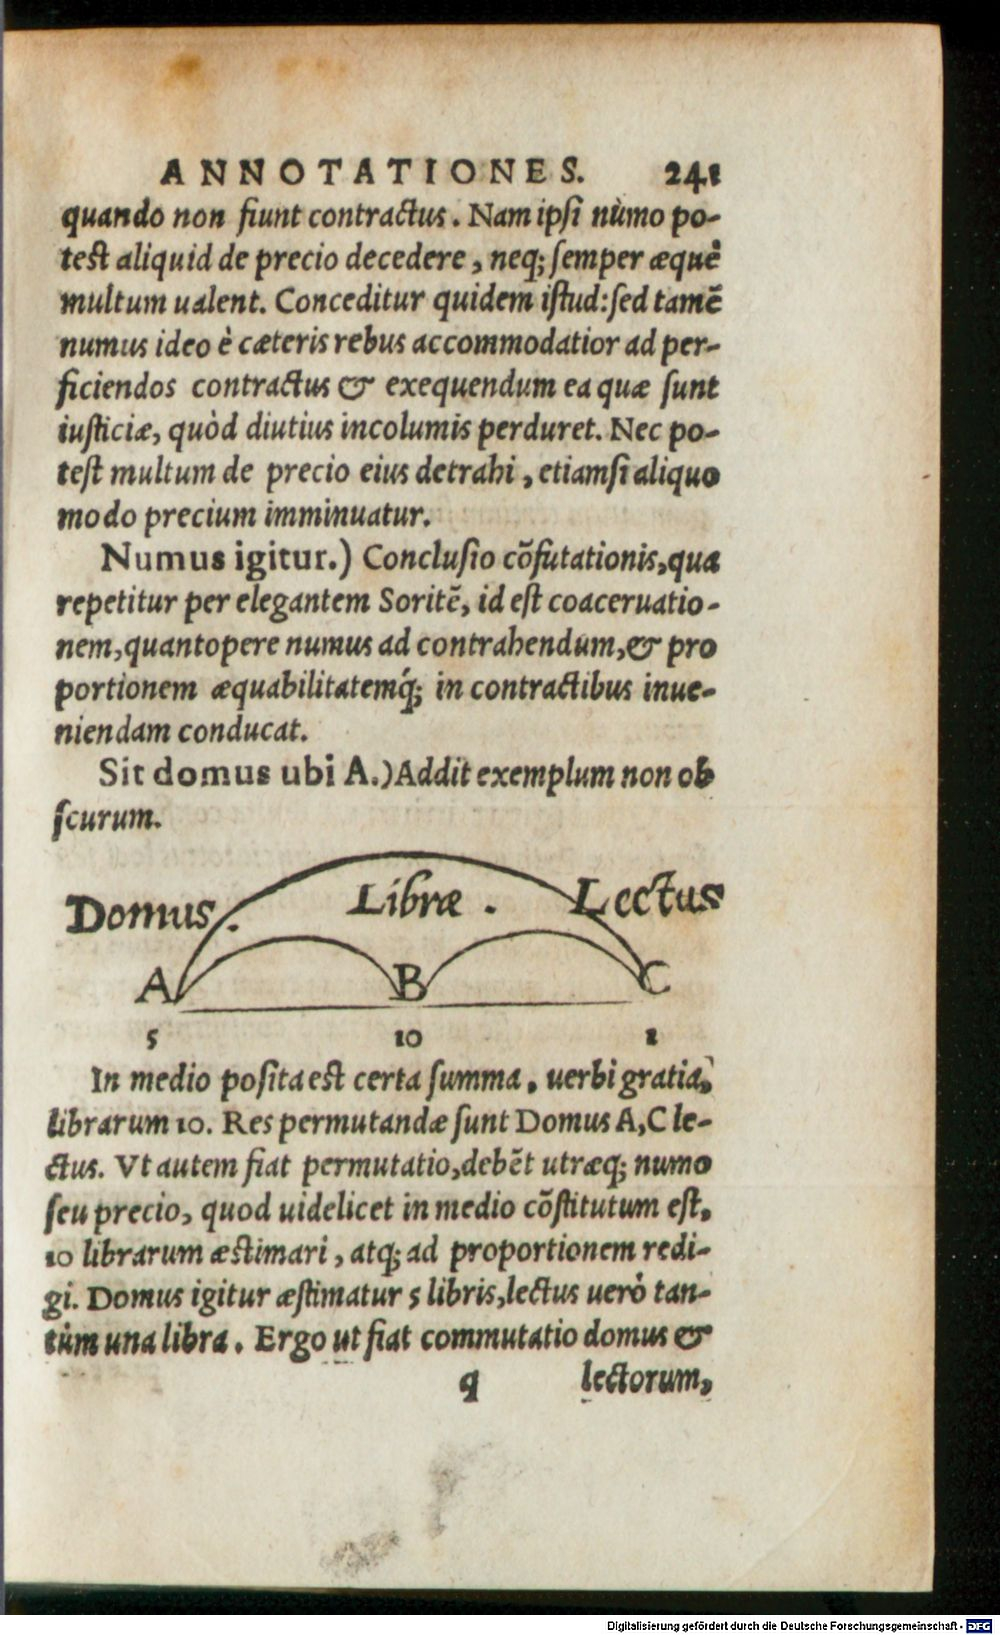 ANNOTATIONES. 241
quando non fiunt contractus. Nam ipsi nùmo po-
test aliquid de precio decedere, neq; semper æquè
multum ualent. Conceditur quidem istud: sed tamē
numus ideo è cæteris rebus accommodatior ad per-
ficiendos contractus & exequendum ea quæ sunt
iusticiæ, quòd diutius incolumis perduret. Nec po-
test multum de precio eius detrahi, etiamsi aliquo
modo precium imminuatur.
Numus igitur.) Conclusio cōfutationis, qua
repetitur per elegantem Soritē, id est coaceruatio-
nem, quantopere numus ad contrahendum, & pro
portionem æquabilitatemq́; in contractibus inue-
niendam conducat.
Sit domus ubi A.) Addit exemplum non ob
scurum.
Domus. Libræ. Lectus
A B C
5 10 1
In medio posita est certa summa, uerbi gratia,
librarum 10. Res permutandæ sunt Domus A, C le-
ctus. Vt autem fiat permutatio, debēt utræq; numo
seu precio, quod uidelicet in medio cōstitutum est,
10 librarum æstimari, atq; ad proportionem redi-
gi. Domus igitur æstimatur 5 libris, lectus uerò tan-
tùm una libra. Ergo ut fiat commutatio domus &
q lectorum,
Digitalisierung gefördert durch die Deutsche Forschungsgemeinschaft - DFG